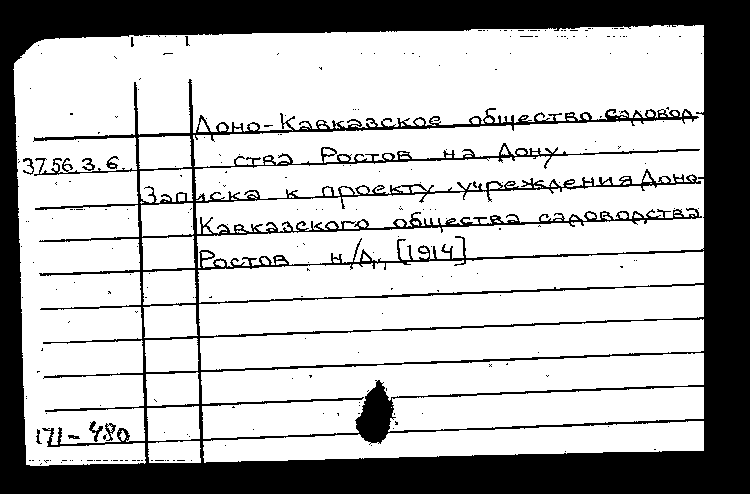 Доно-Кавказское общество садовод-
37.56.3.6. ства. Ростов на Дону.
Записка к проекту учреждения Доно-
Кавказского общества садоводства
Ростов н/Д., [1914]
171-480